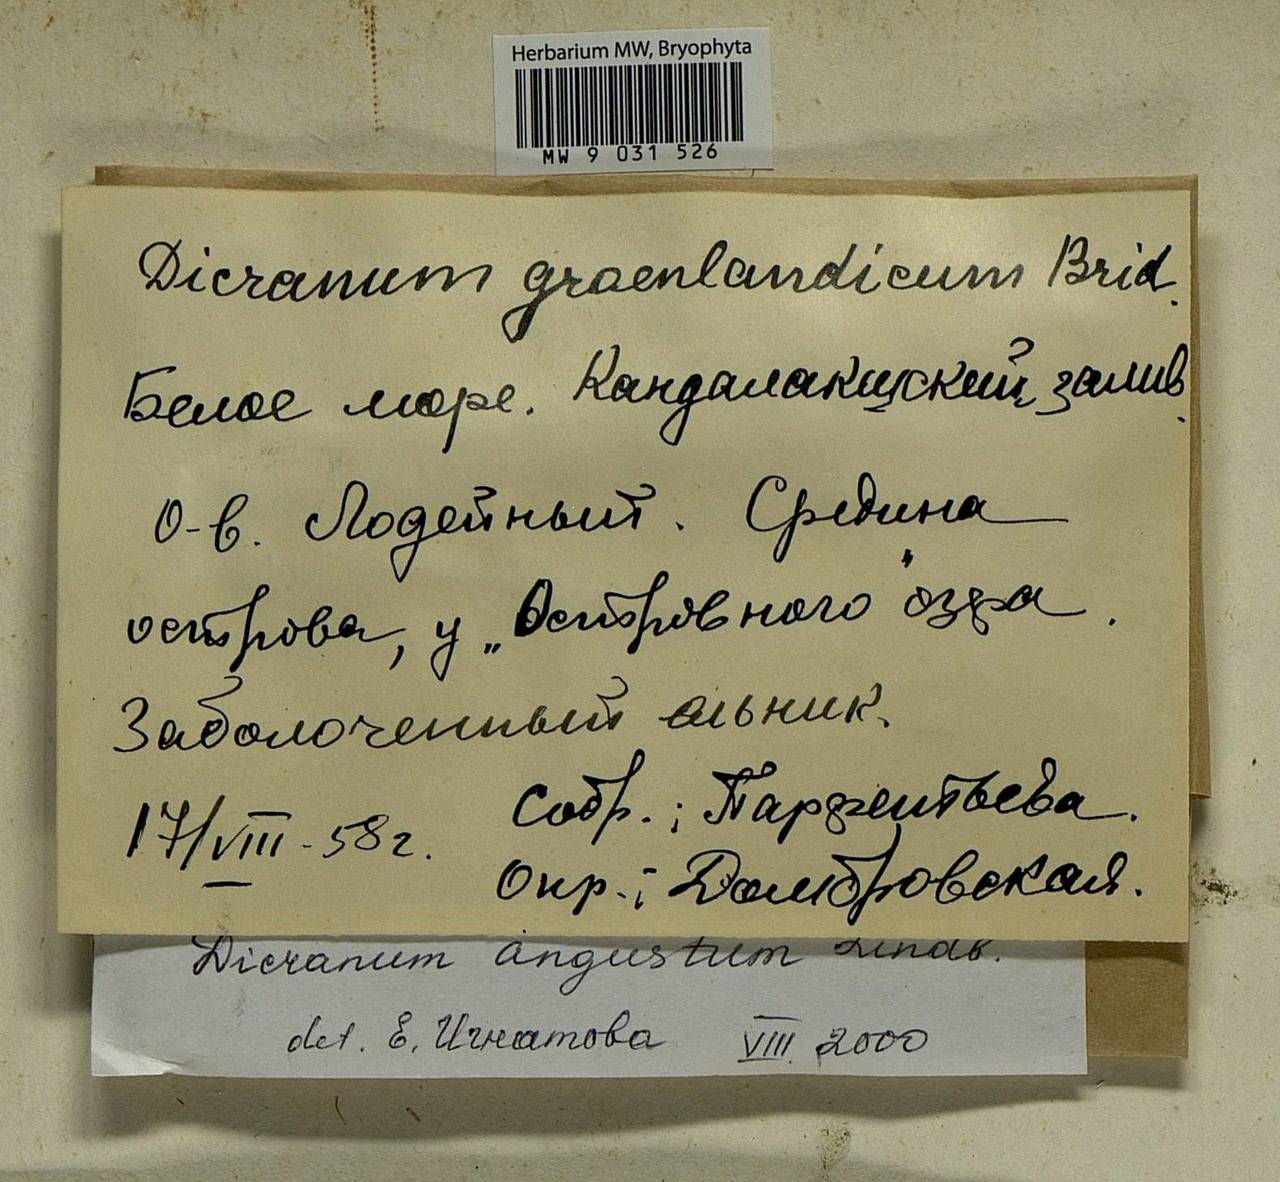 Herbarium MW, Bryophyta
MW 9 031 526
Dicranum groenlandicum Brid.
Белое море. Кандалакшский залив.
О-в. Лодейный. Средина
острова, у „Островного" озера.
Заболоченный ельник.
17/VIII-58г. Собр.: Парфентьева.
Опр.: Домбровская.
Dicranum angustum Lindb.
det. Е. Игнатова VIII 2000